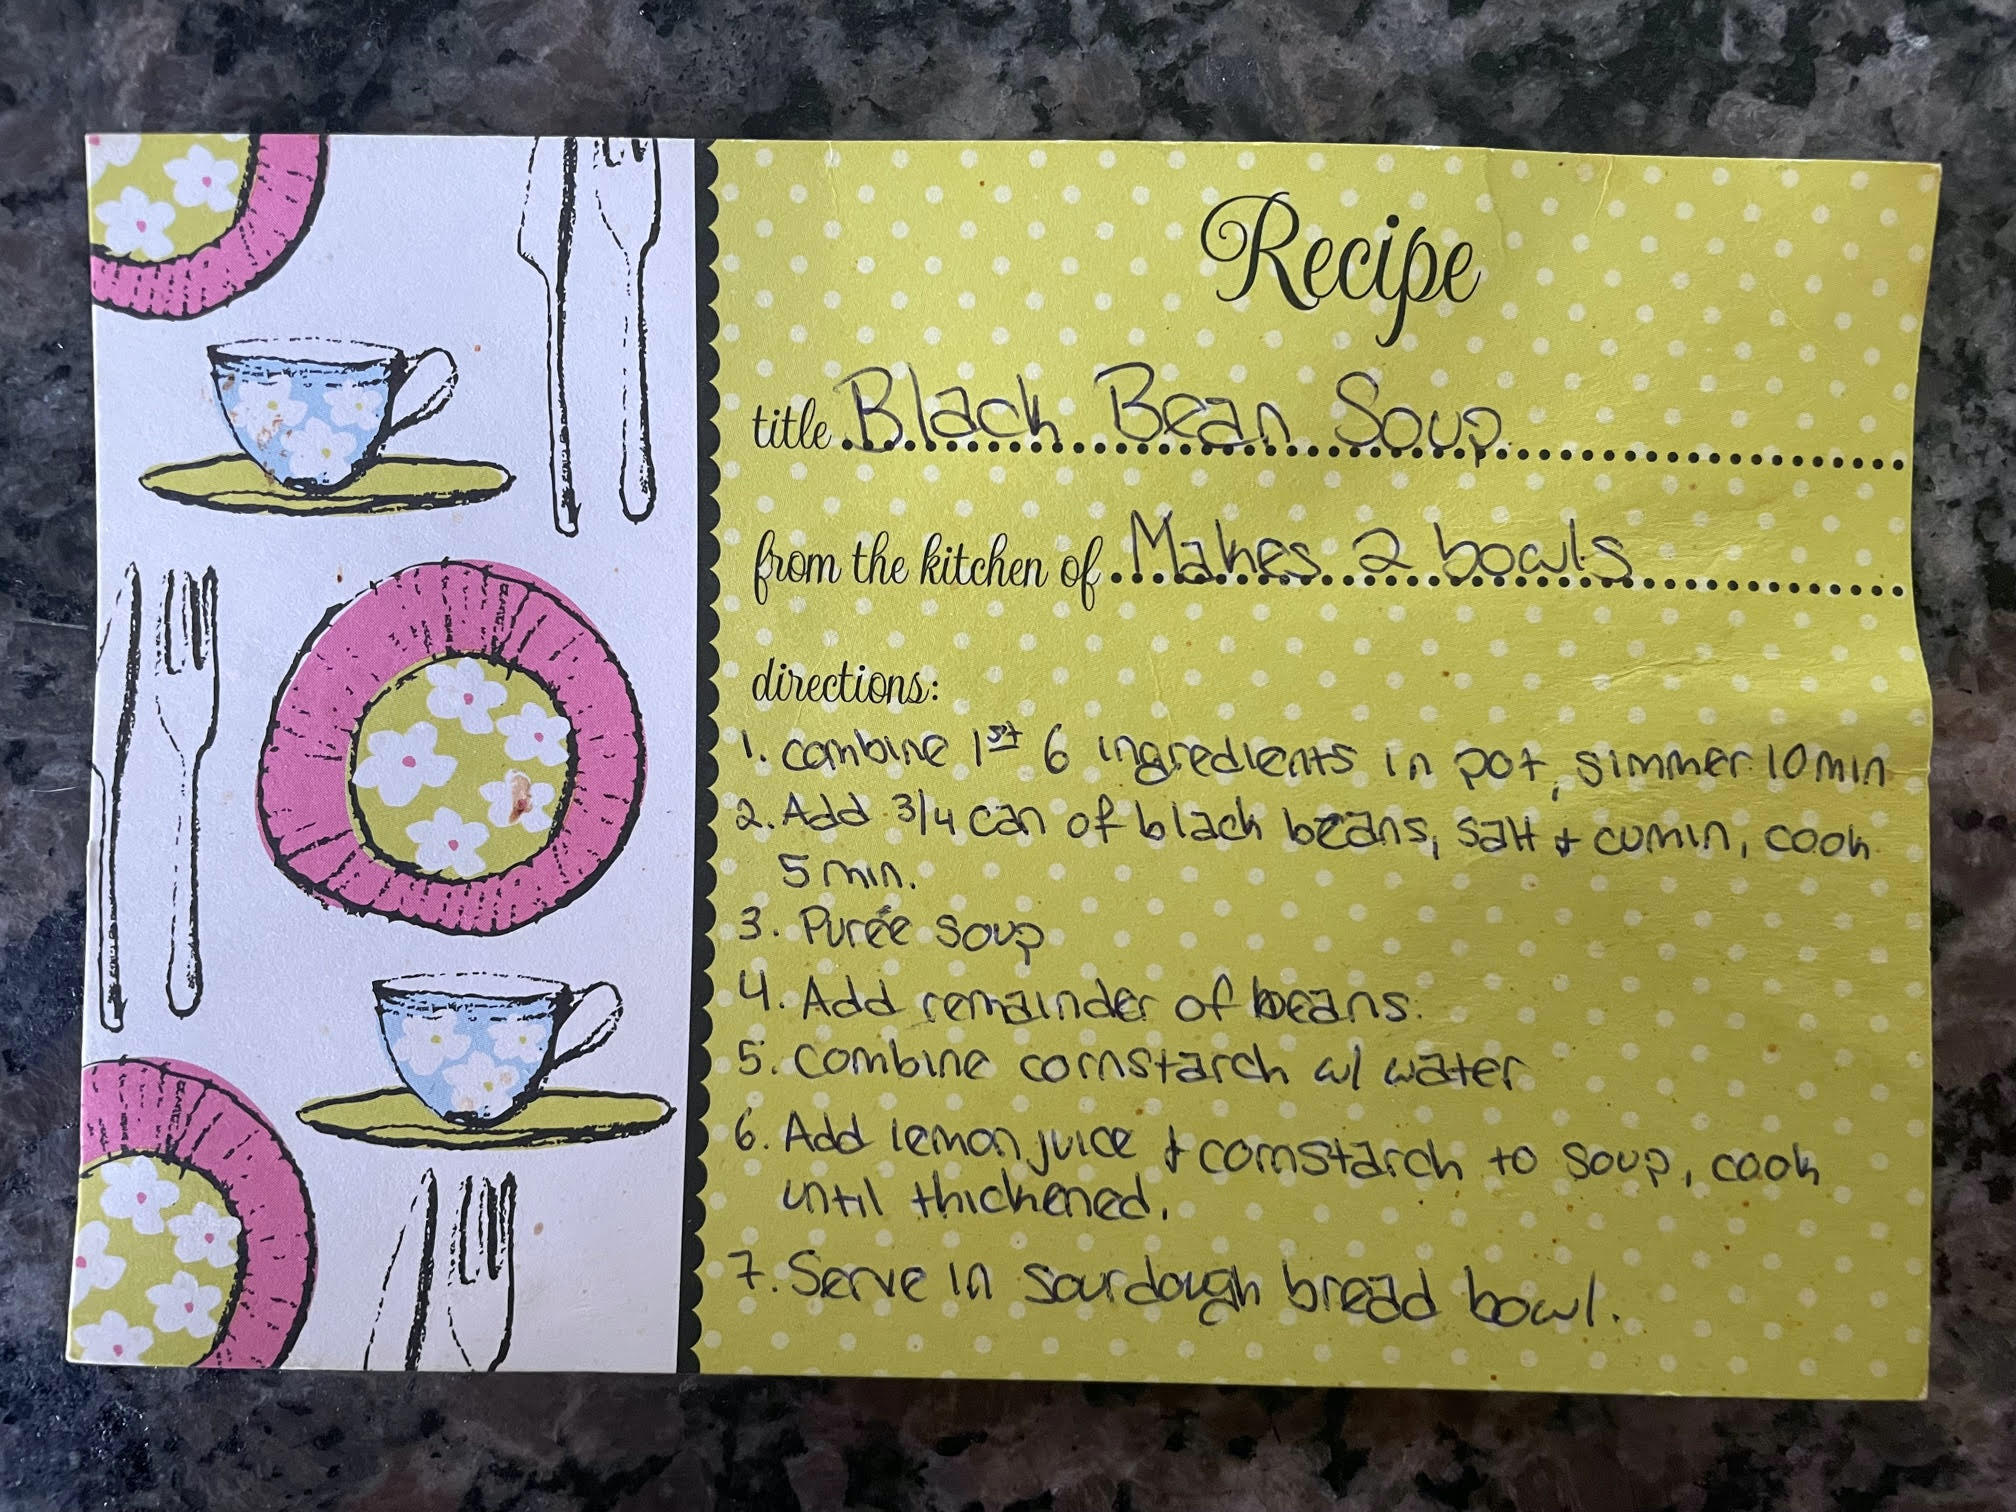 Recipe
title Black Bean Soup
from the kitchen of Makes 2 bowls
directions:
1. combine 1st 6 ingredients in pot, simmer 10 min
2. Add 3/4 can of black beans, salt + cumin, cook
5 min.
3. Purée soup
4. Add remainder of beans.
5. Combine cornstarch w/ water
6. Add lemon juice + cornstarch to soup, cook
until thickened.
7. Serve in sourdough bread bowl.